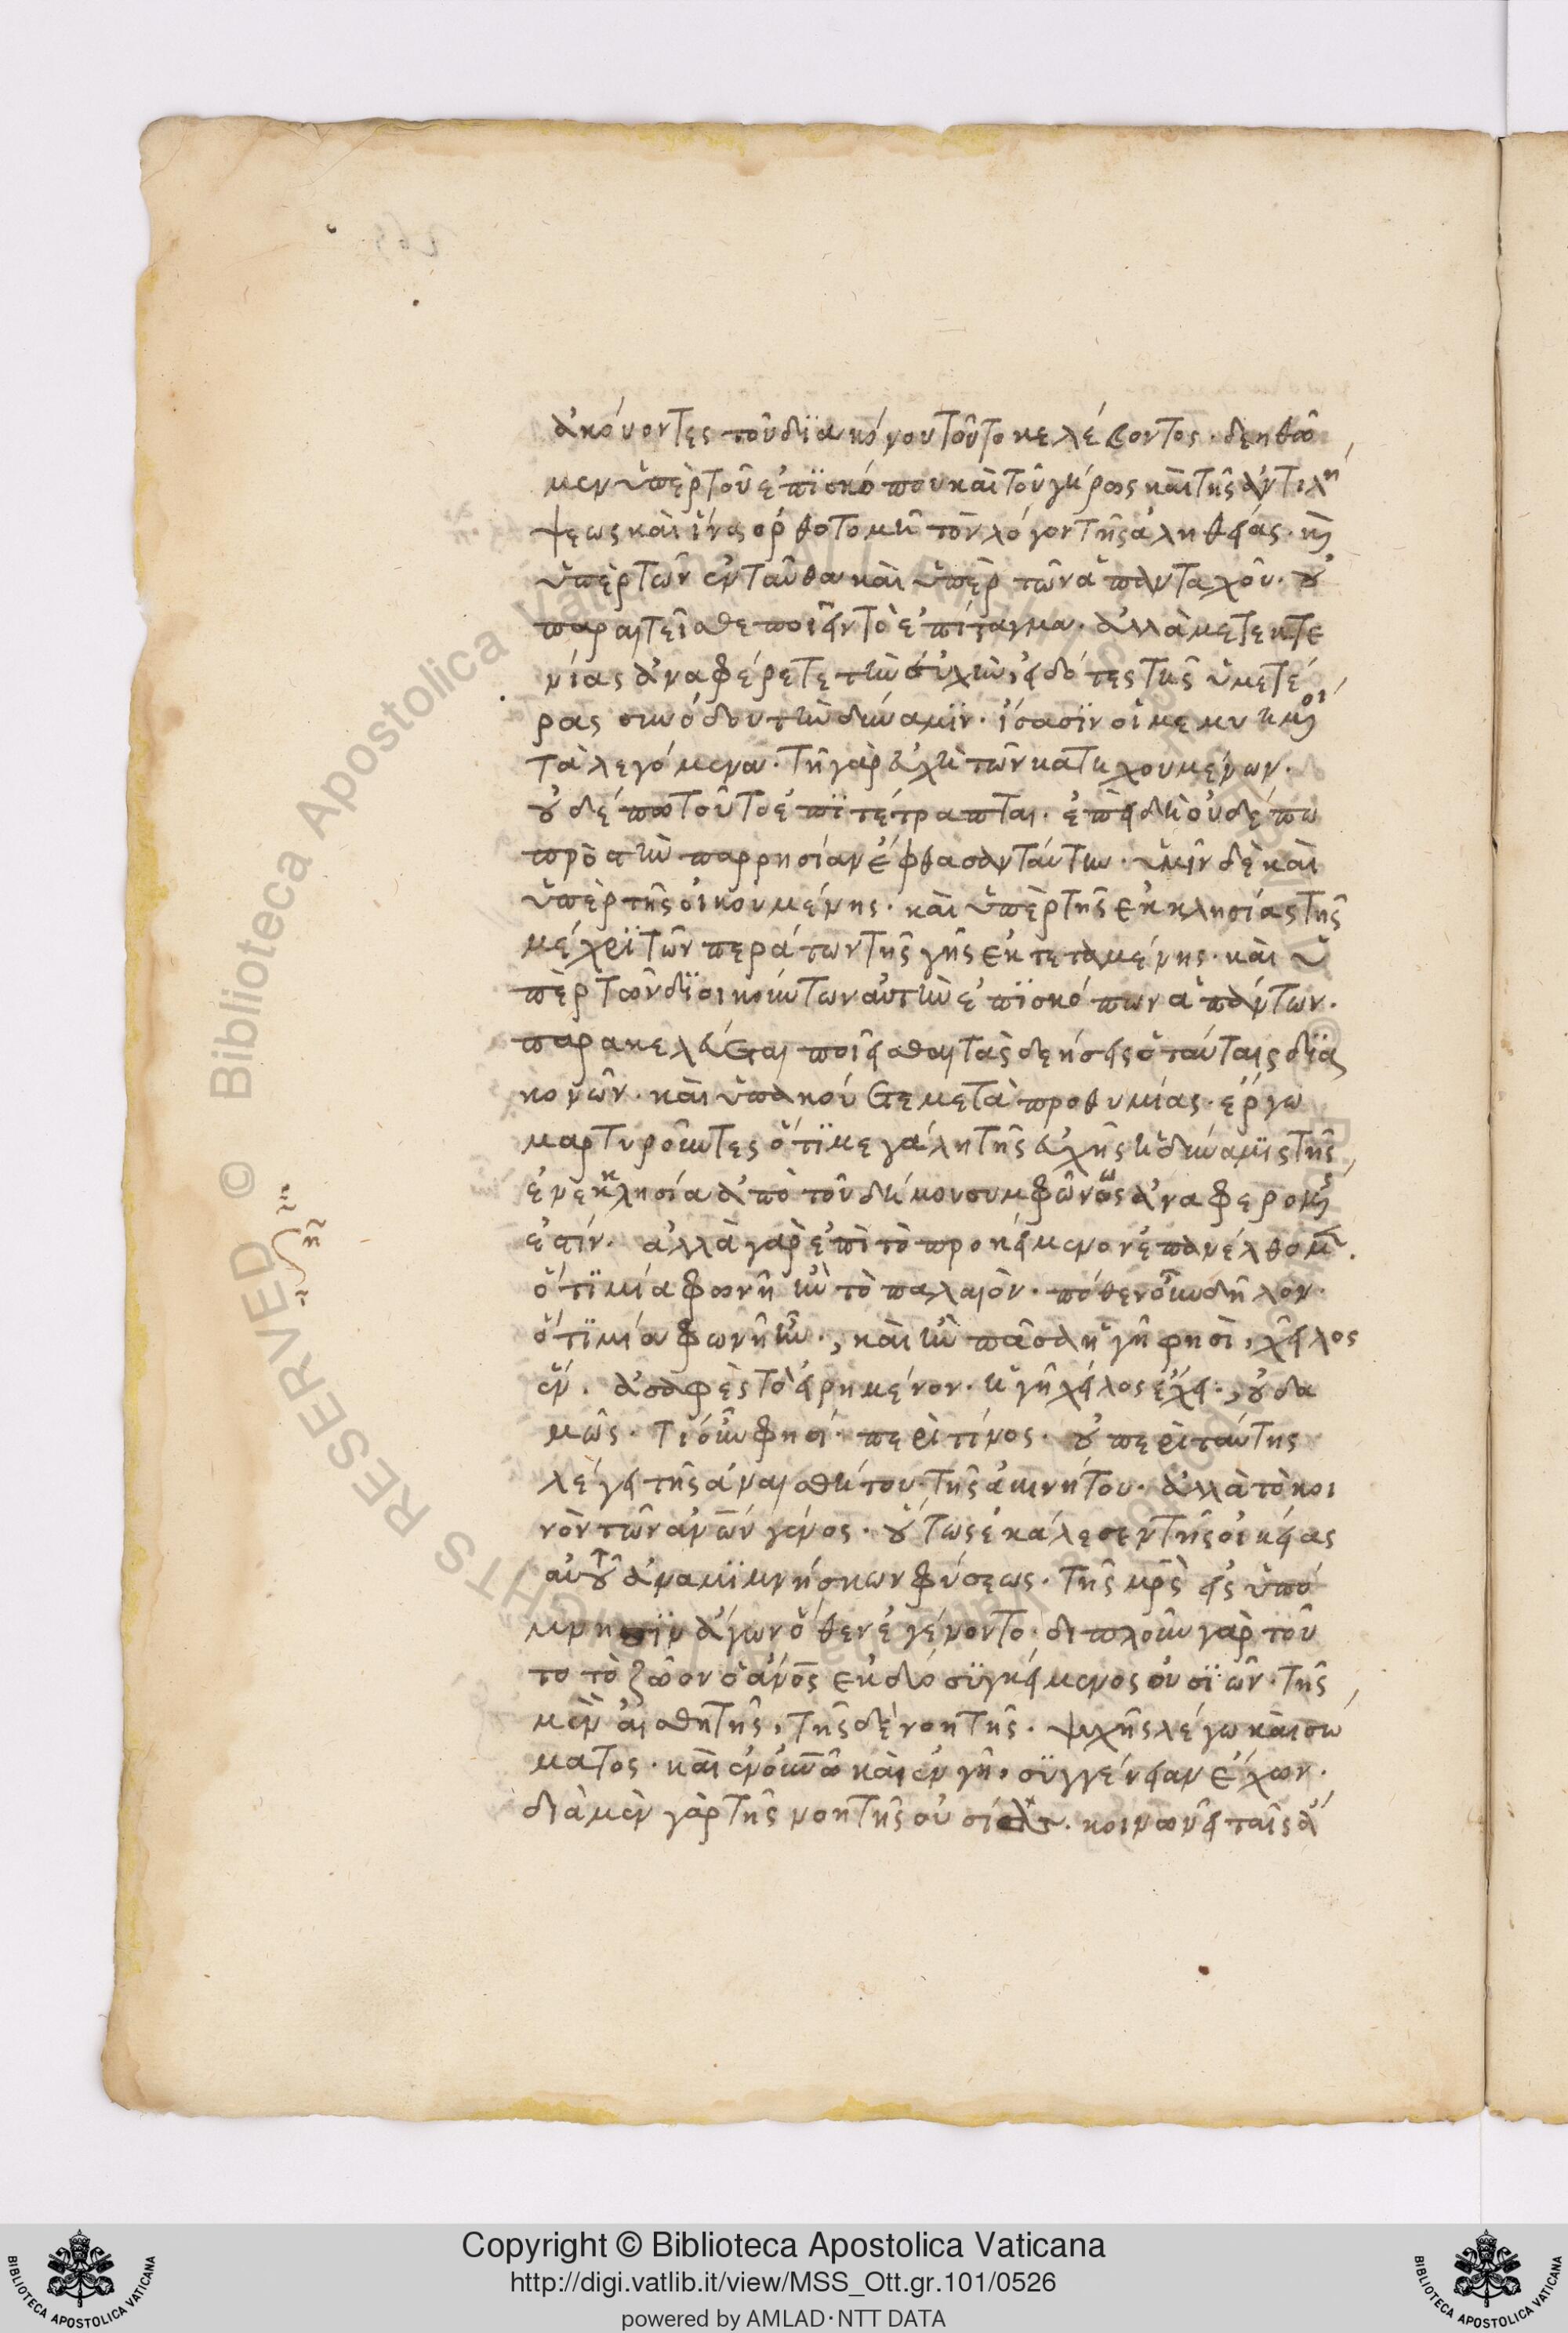 ἀκούοντες τοῦ διακόνου τοῦτο κελεύοντος· δεηθῶ
μεν ὑπὲρ τοῦ ἐπισκόπου καὶ τοῦ γήρως καὶ τῆς ἀντιλή
ψεως καὶ ἵνα ὀρθοτομῆ τὸν λόγον τῆς ἀληθείας· κ(αὶ)
ὑπὲρ τῶν ἐνταῦθα καὶ ὑπὲρ τῶν ἁπανταχοῦ· οὐ
παραιτεῖσθε ποιεῖν τὸ ἐπίταγμα· ἀλλὰ μετ' ἐκτε
νίας ἀναφέρετε τὴν εὐχὴν, εἰδότες τῆς ὑμετέ
ρας συνόδου τὴν δύναμιν· ἴσασιν οἱ μεμυημ(έν)οι
τὰ λεγόμενα· τῆ γὰρ εὐχῆ τῶν κατηχουμένων·
οὐδέπω τοῦτο ἐπιτέτραπται· ἐπειδὴ οὐδέπω
πρὸς τὴν παρρησίαν ἔφθασαν ταύτην· ὑμῖν δὲ καὶ
ὑπὲρ τῆς οἰκουμένης· καὶ ὑπὲρ τῆς ἐκκλησίας τῆς
μέχρι τῶν περάτων τῆς γῆς ἐκτεταμένης· καὶ ὑ
πὲρ τῶν διοικούντων αὐτὴν ἐπισκόπων ἁπάντων·
παρακελεύεται ποιεῖσθαι τὰς δεήσεις ὁ ταύταις δια
κονῶν· καὶ ὑπακούετε μετὰ προθυμίας· ἔργω
μαρτυροῦντες ὅτι μεγάλη τῆς εὐχῆς ἡ δύναμις τῆς
ἐν ἐκκλησία ἀπὸ τοῦ δήμου συμφώνως ἀναφερομ(ένης)
ἐστίν· ἀλλὰ γὰρ ἐπὶ τὸ προκείμενον ἐπανέλθομ(εν)·
ὅτι μία φωνὴ ἦν τὸ παλαιόν· πόθεν οὖν δῆλον·
ὅτι μία φωνὴ ἦν·, καὶ ἦν πᾶσα ἡ γῆ φησὶ, χεῖλος
ἕν· ἀσαφὲς τὸ εἰρημένον· ἡ γῆ χεῖλος ἔχει·, οὐδα
μῶς· τί οὖν φησί· περὶ τίνος· οὐ περὶ ταύτης
λέγει τῆς ἀναισθήτου· τῆς ἀκινήτου· ἀλλὰ τὸ κοι
νὸν τῶν ἀνῶν γένος· οὕτως ἐκάλεσεν τῆς οἰκείας
αὐτοῦ ἀναμιμνήσκων φύσεως· τῆς μρς εἰς ὑπό
μνησιν ἄγων ὅθεν ἐγένοντο· διπλοῦν γὰρ τοῦ
το τὸ ζῶον ὁ ἄνος ἐκ δύο συγκείμενος οὐσιῶν· τῆς
μὲν αἰσθητῆς, τῆς δὲ νοητῆς· ψυχῆς λέγω καὶ σώ
ματος· καὶ ἐν οὐνῶ καὶ ἐν γῆ, συγγένειαν ἔχων·
διὰ μὲν γὰρ τῆς νοητῆς οὐσίας· κοινωνεῖ ταῖς ἄ